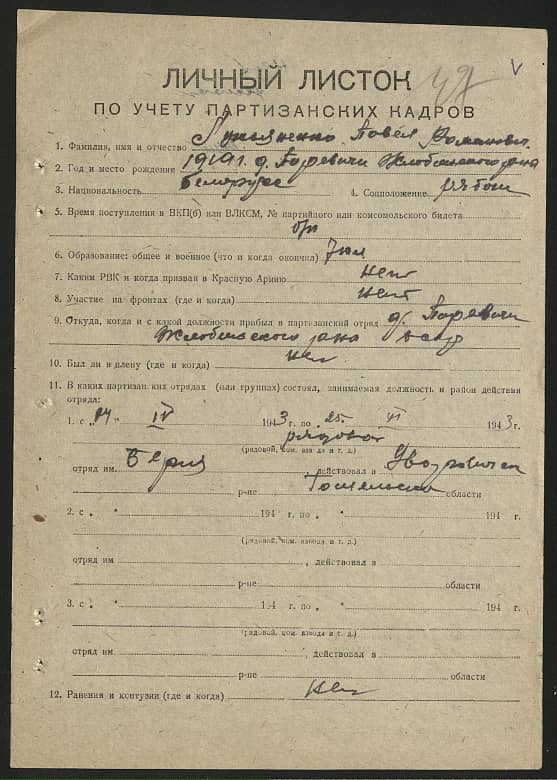 ЛИЧНЫЙ ЛИСТОК
ПО УЧЕТУ ПАРТИЗАНСКИХ КАДРОВ
1. Фамилия, имя и отчество Лукьяненко Павел Романович
2. Год и место рождения 1919 г. д. Паревичи Жлобинского р-на
3. Национальность Белорус 4. Соцположение рабоч
5. Время поступления в ВКП(б) или ВЛКСМ, № партийного или комсомольского билета
б/п
6. Образование: общее и военное (что и когда окончил) 7 кл
7. Каким РВК и когда призван в Красную Армию нет
8. Участие на фронтах (где и когда) нет
9. Откуда, когда и с какой должности прибыл в партизанский отряд д. Паревичи
Жлобинского р-на
10. Был ли в плену (где и когда) нет
11. В каких партизанских отрядах (или группах) состоял, занимаемая должность и район действия
отряда:
1. с „14“ IV 1943 г. по „25“ VI 1943 г.
рядовой
(рядовой, ком. взвода и т. д.)
отряд им. Берия, действовал в
р-не Гомельской области
2. с „ “ 194 г. по „ “ 194 г.
(рядовой, ком. взвода и т. д.)
отряд им , действовал в
р-не области
3. с „ “ 194 г. по „ “ 194 г.
(рядовой, ком. взвода и т. д.)
отряд им. , действовал в
р-не области
12. Ранения и контузии (где и когда) нет